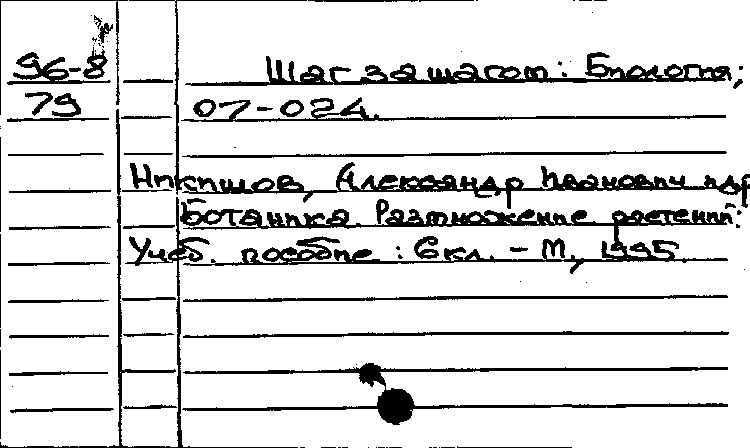 96-8 Шаг за шагом: Биология;
79 07-024.
Никишов, Александр Иванович и др
Ботаника. Размножение растений:
Учеб. пособие : 6 кл. - М., 1995.